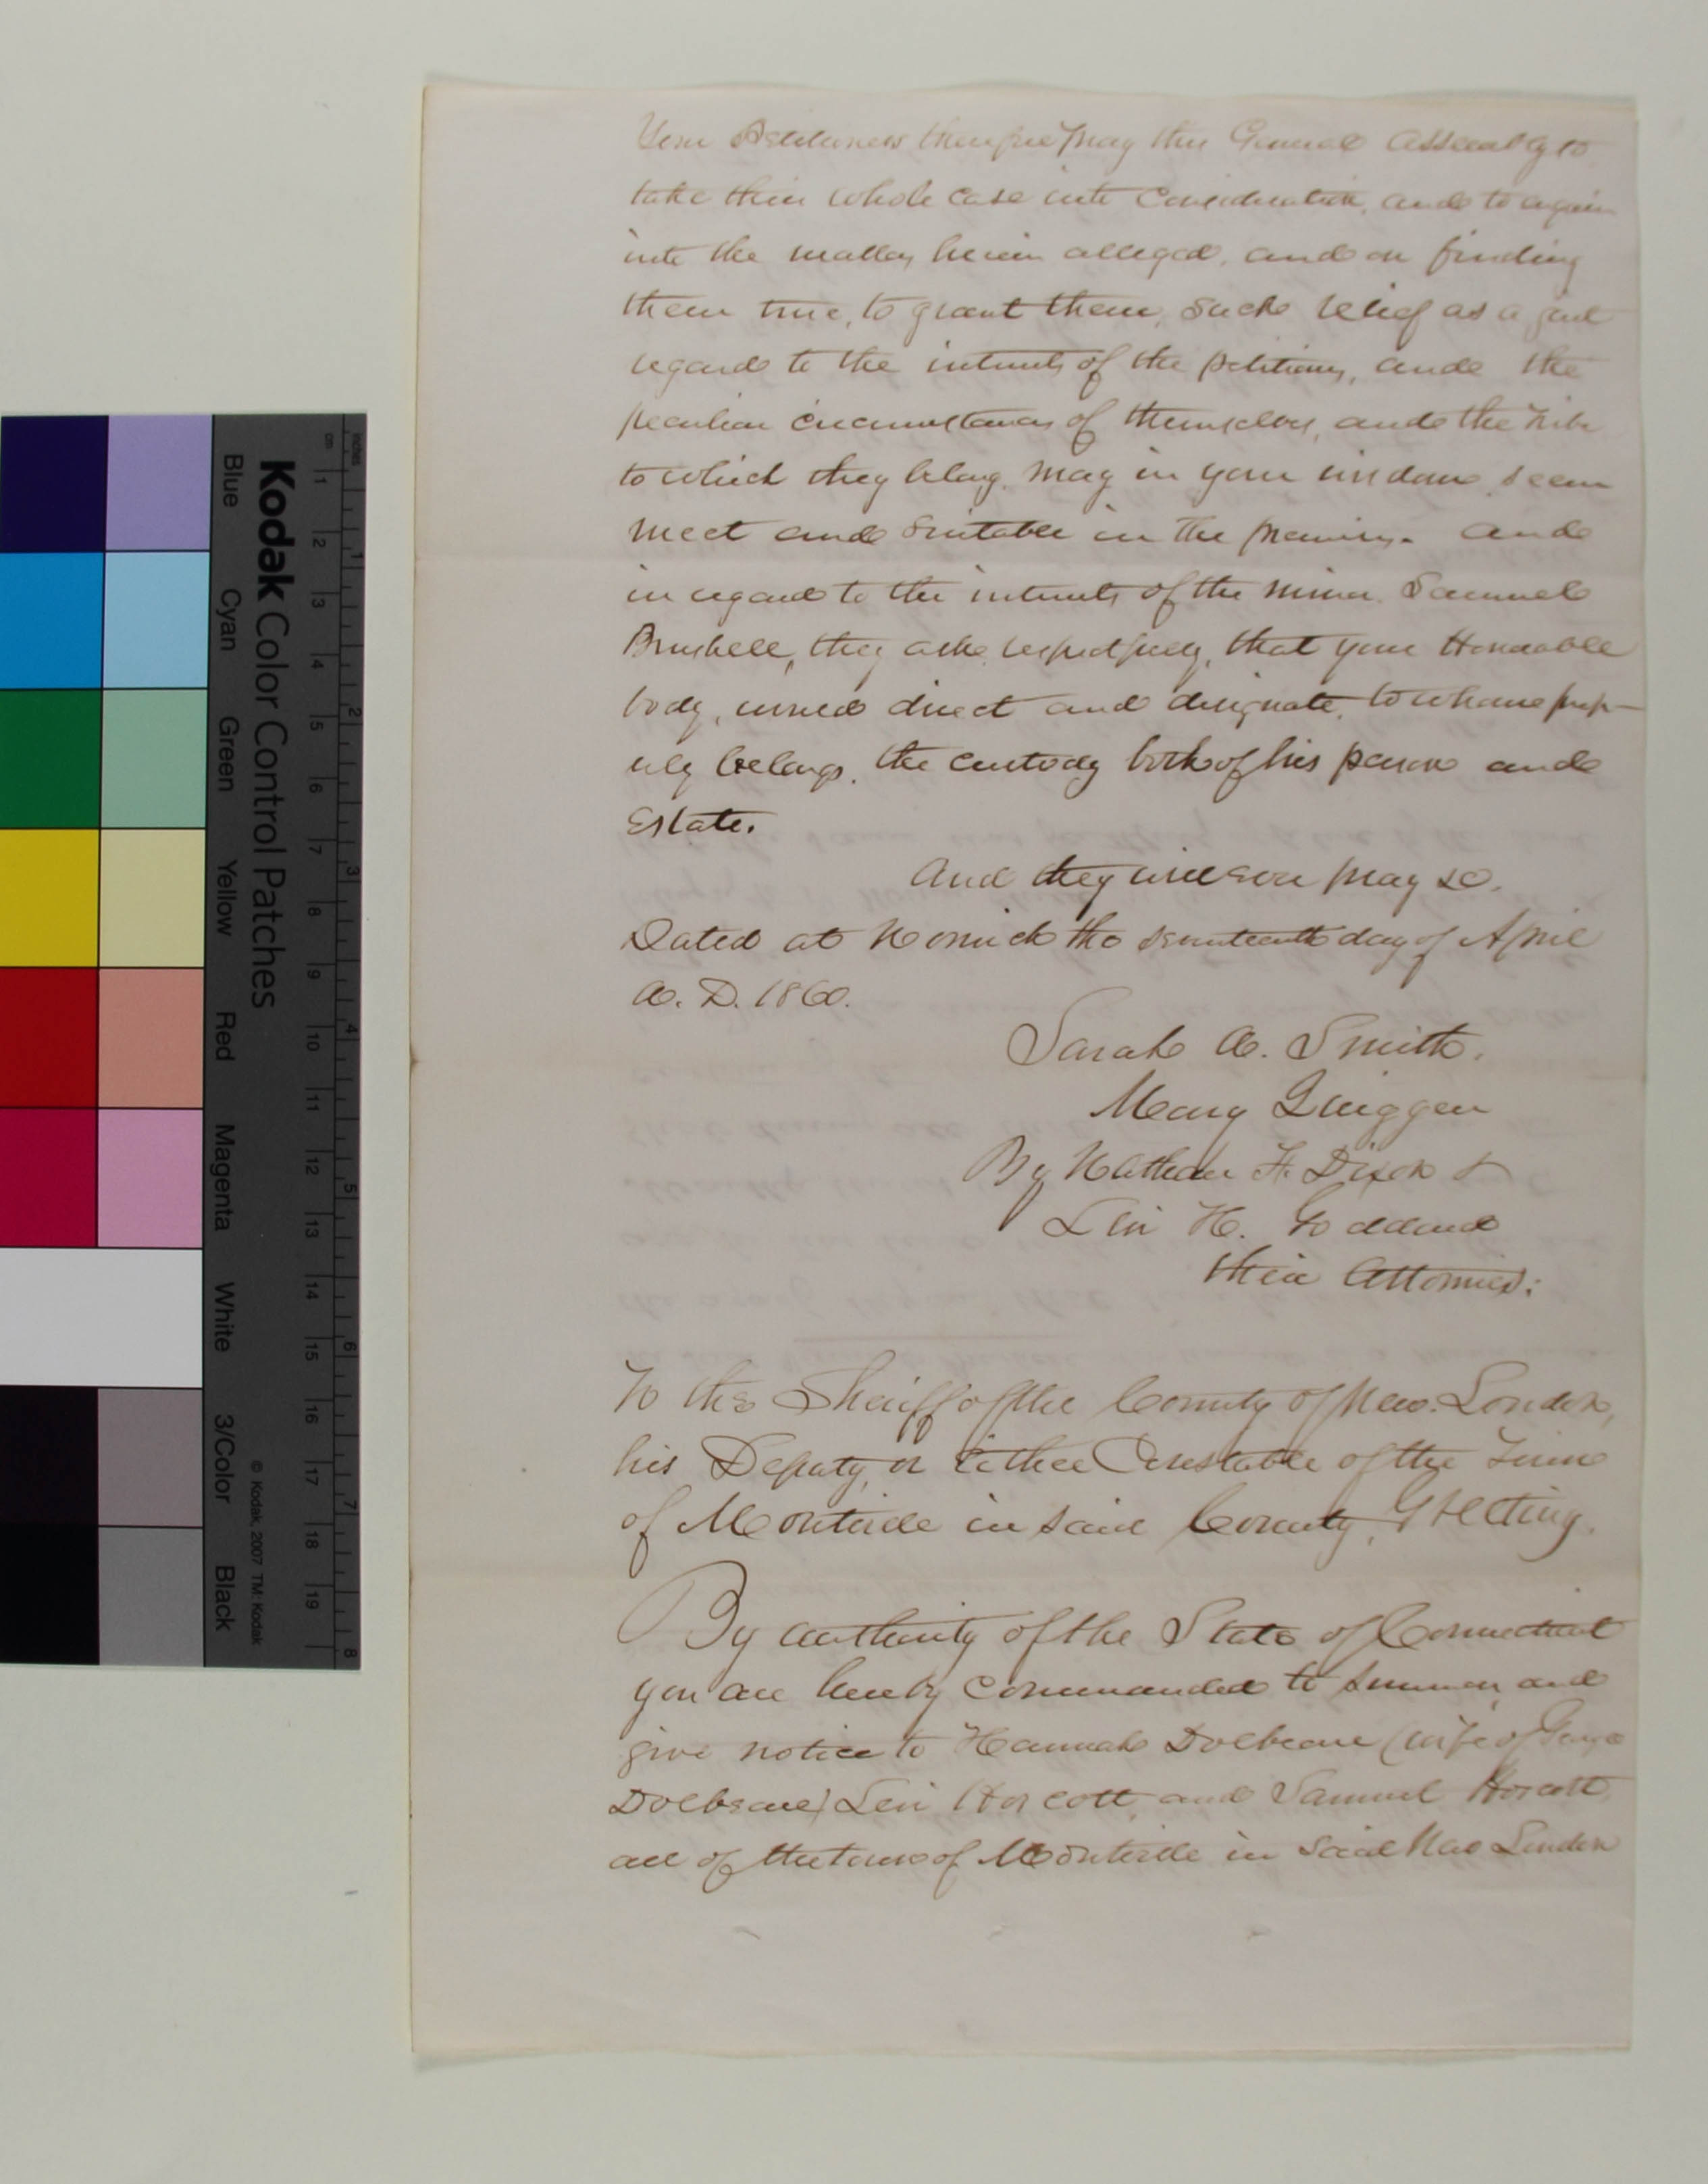 Your Petitioners therefore pray this General Assembly to
take their whole case into Consideration, and to enquire
into the matters herein alleged, and on finding
them true, to grant them, such relief as a just
regard to the interests of the petitioners, and the
peculiar circumstances of themselves, and the tribe
to which they belong, may in your wisdom, seem
meet and suitable in the premises. And
in regard to the interests of the minor Samuel
Brushell, they ask respectfully, that your Honorable
body, would direct and designate, to whom prop-
erly belongs, the custody both of his person and
Estate.
And they will ever pray &c.
Dated at Norwich the seventeenth day of April
A. D. 1860.
Sarah A. Smith.
Mary Quiggen
By Nathan F. Dixon &
Levi H. Goddard
their Attornies.
To the Sheriff of the County of New-London,
his Deputy, or Either Constable of the Town
of Montville in said County, Greeting.
By authority of the State of Connecticut
you are hereby commanded to summon and
give notice to Hannah Dolbeare (wife of George
Dolbeare) Levi Horscott, and Samuel Horscott
all of the town of Montville in said New London
Kodak Color Control Patches
Blue Cyan Green Yellow Red Magenta White 3/Color Black
© Kodak, 2007 TM: Kodak
inches 1 2 3 4 5 6 7 8
cm 1 2 3 4 5 6 7 8 9 10 11 12 13 14 15 16 17 18 19